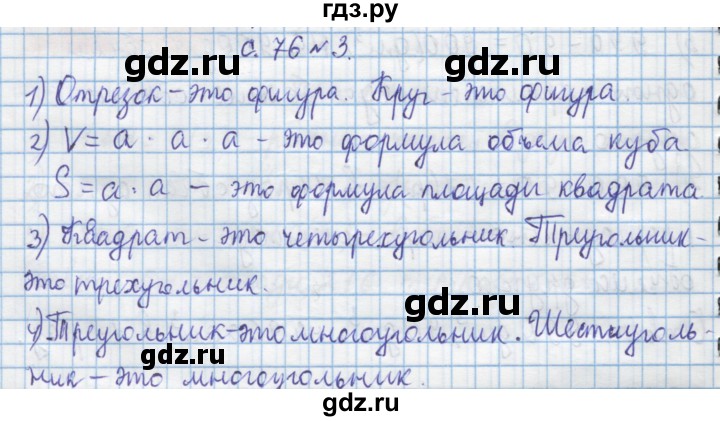 гдз.ру
с. 76 № 3.
gdz.ru gdz.ru
1) Отрезок - это фигура. Круг - это фигура.
2) V = a · a · a - это формула объема куба
gdz.ru gdz.ru
S = a · a - это формула площади квадрата
3) Квадрат - это четырехугольник Треугольник -
это трехугольник.
gdz.ru
4) Треугольник - это многоугольник. Шестиуголь-
gdz.ru gdz.ru
ник - это многоугольник.
gdz.ru